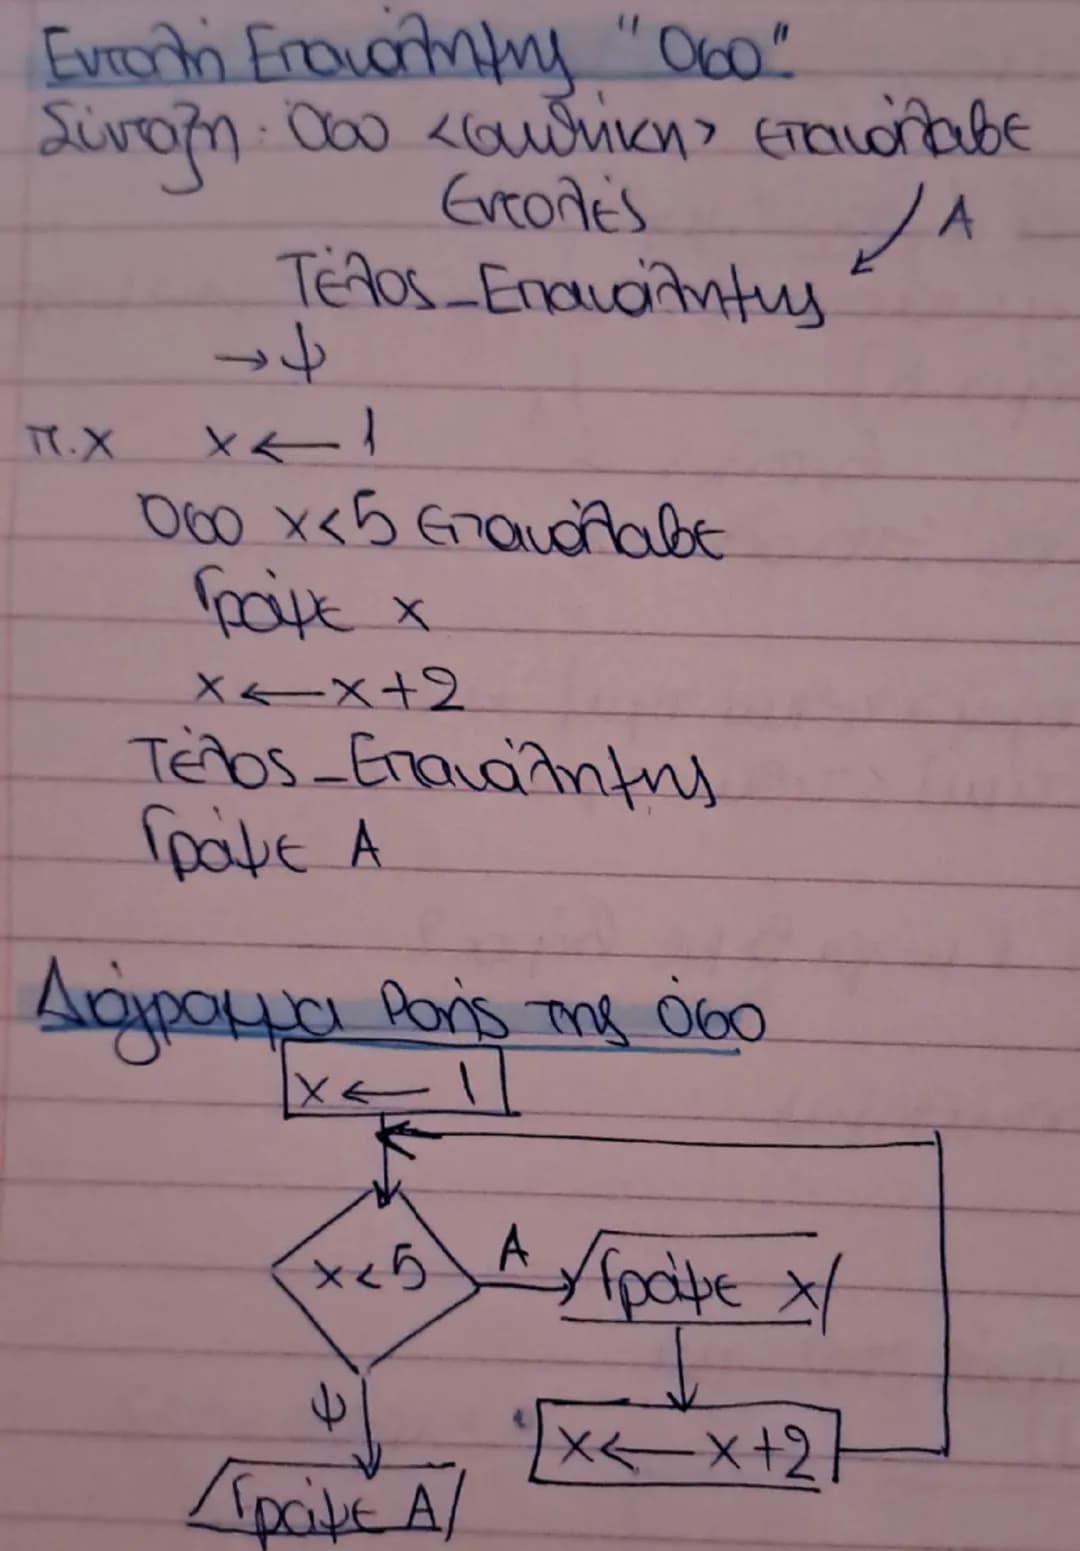 Εντολή Επανάληψης "Όσο"
Σύνταξη: Όσο <συνθήκη> επανάλαβε
Εντολές
A
Τέλος_Επανάληψης
→ Ψ
π.χ x ← 1
Όσο x<5 επανάλαβε
Γράψε x
x ← x+2
Τέλος_Επανάληψης
Γράψε A
Διάγραμμα Ροής της όσο
x ← 1
x<5
A
Γράψε x
Ψ
x ← x+2
Γράψε A